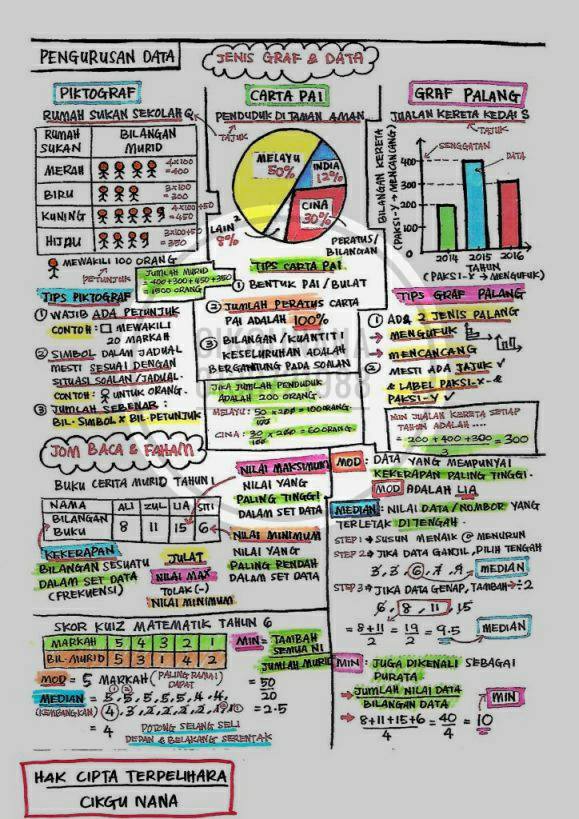 PENGURUSAN DATA
JENIS GRAF & DATA
PIKTOGRAF
RUMAH SUKAN SEKOLAH Q
TAJUK
RUMAH SUKAN
BILANGAN MURID
MERAH
4x100
=400
BIRU
3x100
=300
KUNING
4x100+50
=450
HIJAU
3x100+50
=350
MEWAKILI 100 ORANG
PETUNJUK
JUMLAH MURID
=400+300+450+350
TIPS PIKTOGRAF
① WAJIB ADA PETUNJUK
CONTOH: □ MEWAKILI
20 MARKAH
② SIMBOL DALAM JADUAL
MESTI SESUAI DENGAN
SITUASI SOALAN/JADUAL.
CONTOH: UNTUK ORANG.
③ JUMLAH SEBENAR:
BIL-SIMBOL X BIL-PETUNJUK
CARTA PAI
PENDUDUK DI TAMAN AMAN
MELAYU
50%
INDIA
12%
CINA
30%
LAIN²
8%
PERATUS/
BILANGAN
TIPS CARTA PAI
① BENTUK PAI / BULAT
② JUMLAH PERATUS CARTA
PAI ADALAH 100%
③ BILANGAN / KUANTITI
KESELURUHAN ADALAH
BERGANTUNG PADA SOALAN
JIKA JUMLAH PENDUDUK
ADALAH 200 ORANG.
MELAYU: 50/100 x 200 = 100 ORANG
CINA: 30/100 x 200 = 60 ORANG
GRAF PALANG
JUALAN KERETA KEDAI S
TAJUK
BILANGAN KERETA
(PAKSI-Y → MENCANCANG)
SENGGATAN
DATA
400
300
200
100
2014 2015 2016
TAHUN
(PAKSI-X → MENGUFUK)
TIPS GRAF PALANG
① ADA 2 JENIS PALANG
→ MENGUFUK
→ MENCANCANG
② MESTI ADA TAJUK ✓
& LABEL PAKSI-X- &
PAKSI-Y ✓
MIN JUALAN KERETA SETIAP
TAHUN ADALAH ....
= 200 + 400 + 300 = 300
3
JOM BACA & FAHAM
BUKU CERITA MURID TAHUN 1
NAMA ALI ZUL LIA SITI
BILANGAN BUKU 8 11 15 6
KEKERAPAN
BILANGAN SESUATU
DALAM SET DATA
(FREKUENSI)
JULAT
NILAI MAX
TOLAK (-)
NILAI MINIMUM
NILAI MAKSIMUM
NILAI YANG
PALING TINGGI
DALAM SET DATA
NILAI MINIMUM
NILAI YANG
PALING RENDAH
DALAM SET DATA
MOD: DATA YANG MEMPUNYAI
KEKERAPAN PALING TINGGI.
MOD ADALAH LIA
MEDIAN: NILAI DATA / NOMBOR YANG
TERLETAK DI TENGAH.
STEP 1 → SUSUN MENAIK @ MENURUN
STEP 2 → JIKA DATA GANJIL, PILIH TENGAH
3, 3, 6, 7, 9 MEDIAN
STEP 3 → JIKA DATA GENAP, TAMBAH → ÷2
6, 8, 11, 15
= 8+11/2 = 19/2 = 9.5 MEDIAN
MIN: JUGA DIKENALI SEBAGAI
PURATA
→ JUMLAH NILAI DATA
BILANGAN DATA
MIN
→ 8+11+15+6/4 = 40/4 = 10
SKOR KUIZ MATEMATIK TAHUN 6
MARKAH 5 4 3 2 1
BIL-MURID 5 3 1 4 2
MOD = 5 MARKAH (PALING RAMAI DAPAT)
MEDIAN = 5, 5, 5, 5, 5, 4, 4,
(KEMBANGKAN) 4, 3, 2, 2, 2, 2, 1, 1
= 4
POTONG SELANG SELI
DEPAN & BELAKANG SERENTAK
MIN = TAMBAH
SEMUA NI
JUMLAH MURID
= 50
20
= 2.5
HAK CIPTA TERPELIHARA
CIKGU NANA